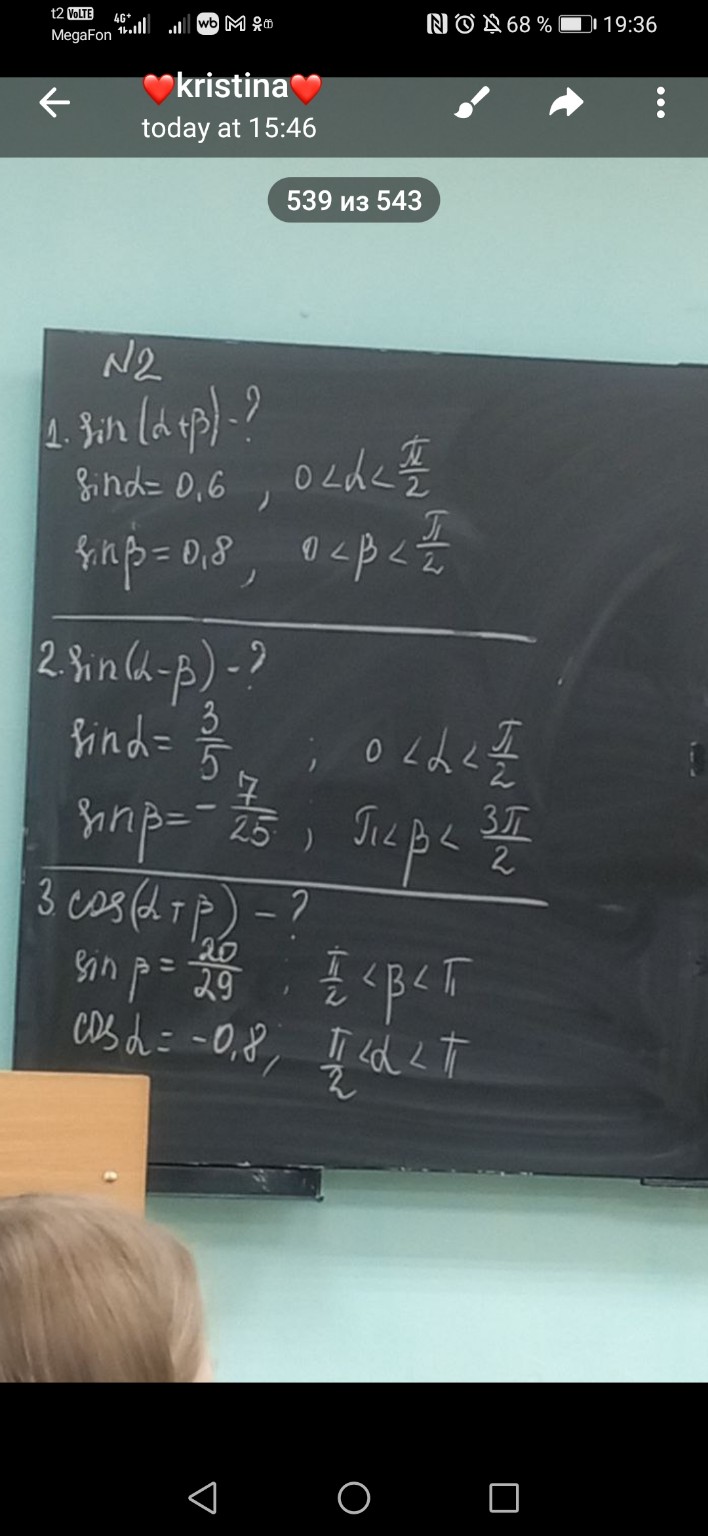 t2 VoLTE
MegaFon
4G+
wb
68 %
19:36
❤️kristina❤️
today at 15:46
539 из 543
N2
1. sin(α+β)-?
sinα= 0,6 , 0<α<π/2
sinβ=0,8, 0<β<π/2
2. sin(α-β)-?
sinα= 3/5 ; 0<α<π/2
sinβ=-7/25 ; π<β<3π/2
3. cos(α+β)-?
sinβ=20/29 ; π/2<β<π
cosα=-0,8; π/2<α<π